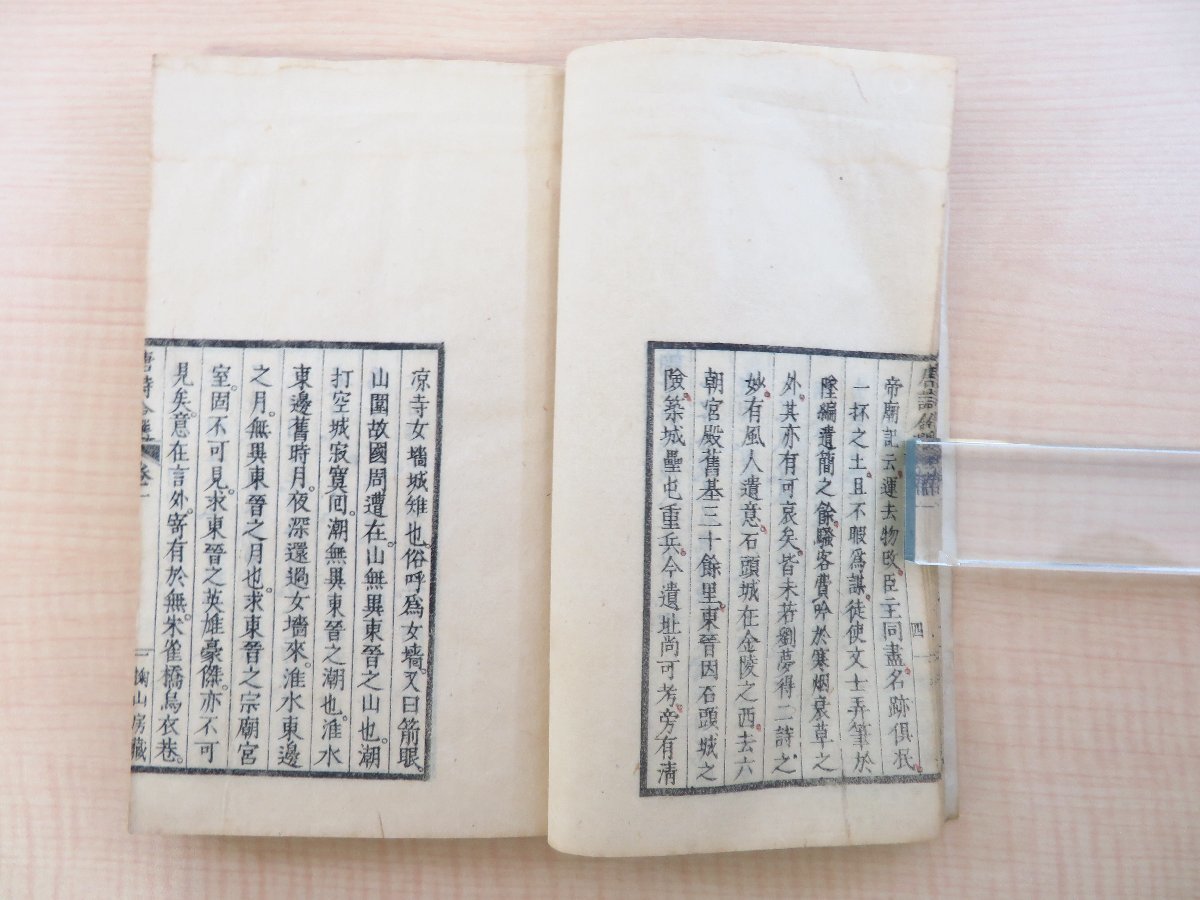 帝廟記云。運去物改。臣主同盡。名跡俱泯。
一抔之土。且不暇爲謀。徒使文士弄筆於
墜編遺簡之餘。騷客費吟於寒烟衰草之
外。其亦有可哀矣。皆未若劉夢得二詩之
妙。有風人遺意。石頭城在金陵之西。去六
朝宮殿舊基三十餘里。東晉因石頭城之
險。築城壘屯重兵。今遺址尚可考。旁有清
四
凉寺女墻城雉也。俗呼爲女墻。又曰箭眼
山圍故國周遭在。山無異東晉之山也。潮
打空城寂寞囘。潮無異東晉之潮也。淮水
東邊舊時月。夜深還過女墻來。淮水東邊
之月。無異東晉之月也。求東晉之宗廟宮
室。固不可見。求東晉之英雄豪傑。亦不可
見矣。意在言外。寄有於無。朱雀橋烏衣巷。
卷一
山房藏